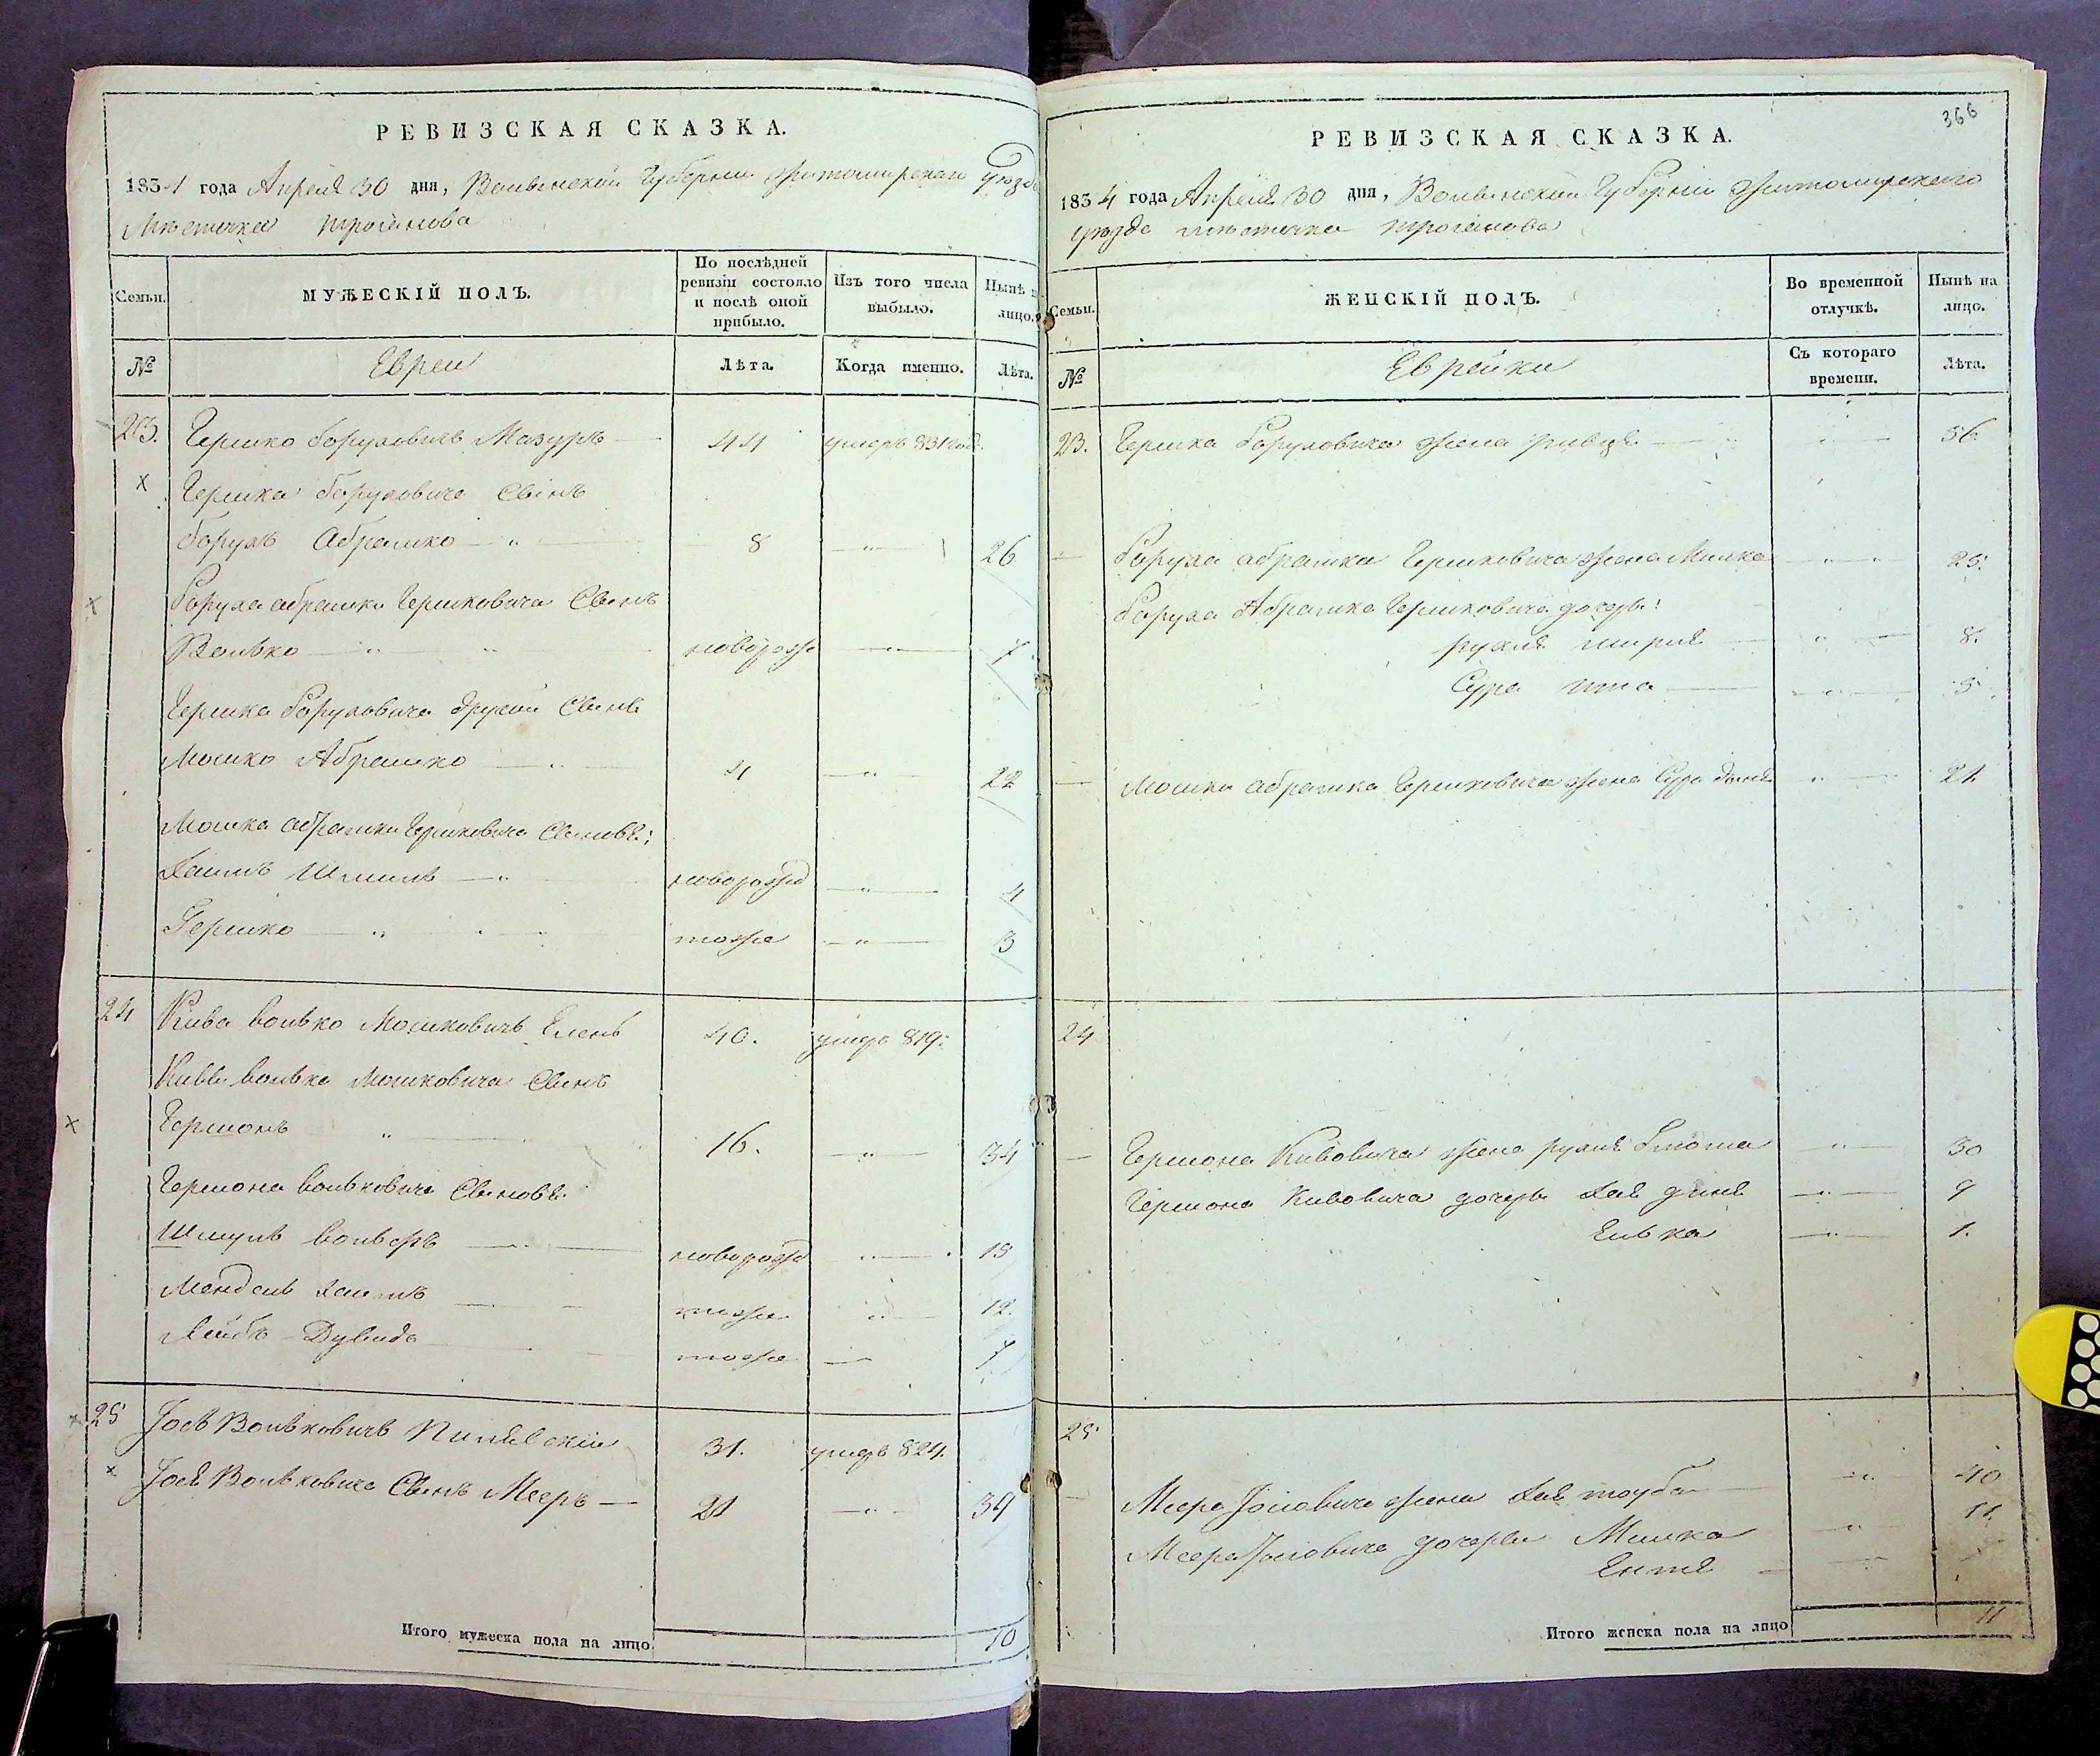 РЕВИЗСКАЯ СКАЗКА.
1834 года Апреля 30 дня, Волынской Губернии Житомирскаго Уезда
Местечка Троянова
Семьи.
МУЖЕСКІЙ ПОЛЪ.
По послѣдней ревизіи состояло и послѣ оной прибыло.
Изъ того числа выбыло.
Нынѣ на лицо.
№
Евреи
Лѣта.
Когда именно.
Лѣта.
23. Гершко Борухович Мазуръ 44 умеръ 831 год.
Гершка Боруховича Сынъ
Борухъ Абрамко 8 26
Боруха Абрамки Гершковича Сынъ
Волько новорожд 7
Гершка Боруховича другой Сынъ
Мошко Абрамко 4 22
Мошка Абрамки Гершковича Сыновья:
Хаимъ Шмиль новорожд 4
Гершко тоже 3
24 Кива Волько Мошковичъ Елень 40. умеръ 819.
Кивы Волька Мошковича Сынъ
Гершонъ 16. 34
Гершона Вольковича Сыновья
Шмуль Вольфъ новорожд 15
Мендель Хаимъ тоже 12.
Лейбъ Дувидъ тоже 7
25 Іось Вольковичъ 31. умеръ 824.
Іося Вольковича Сынъ Мееръ 21 39
Итого мужеска пола на лицо 10
366
РЕВИЗСКАЯ СКАЗКА.
1834 года Апреля 30 дня, Волынской Губерніи Житомирскаго
уезда местечка Троянова
Семьи.
ЖЕНСКІЙ ПОЛЪ.
Во временной отлучкѣ.
Нынѣ на лицо.
№
Еврейки
Съ котораго времени.
Лѣта.
23. Гершка Боруховича жена Ривця 56
Боруха Абрамки Гершковича жена Милка 25.
Боруха Абрамка Гершковича дочери:
Рухля Ширля 8.
Сура Ита 5
Мошки Абрамка Гершковича жена Сура 21.
24
Гершона Кивовича жена Рухля 30
Гершона Кивовича дочери Хая Диня 9
Елька 1.
25
Меера Іосіовича жена Хая Тауба 40
Меера Іосіовича дочери Милка 11.
Ентя
Итого женска пола на лицо 11